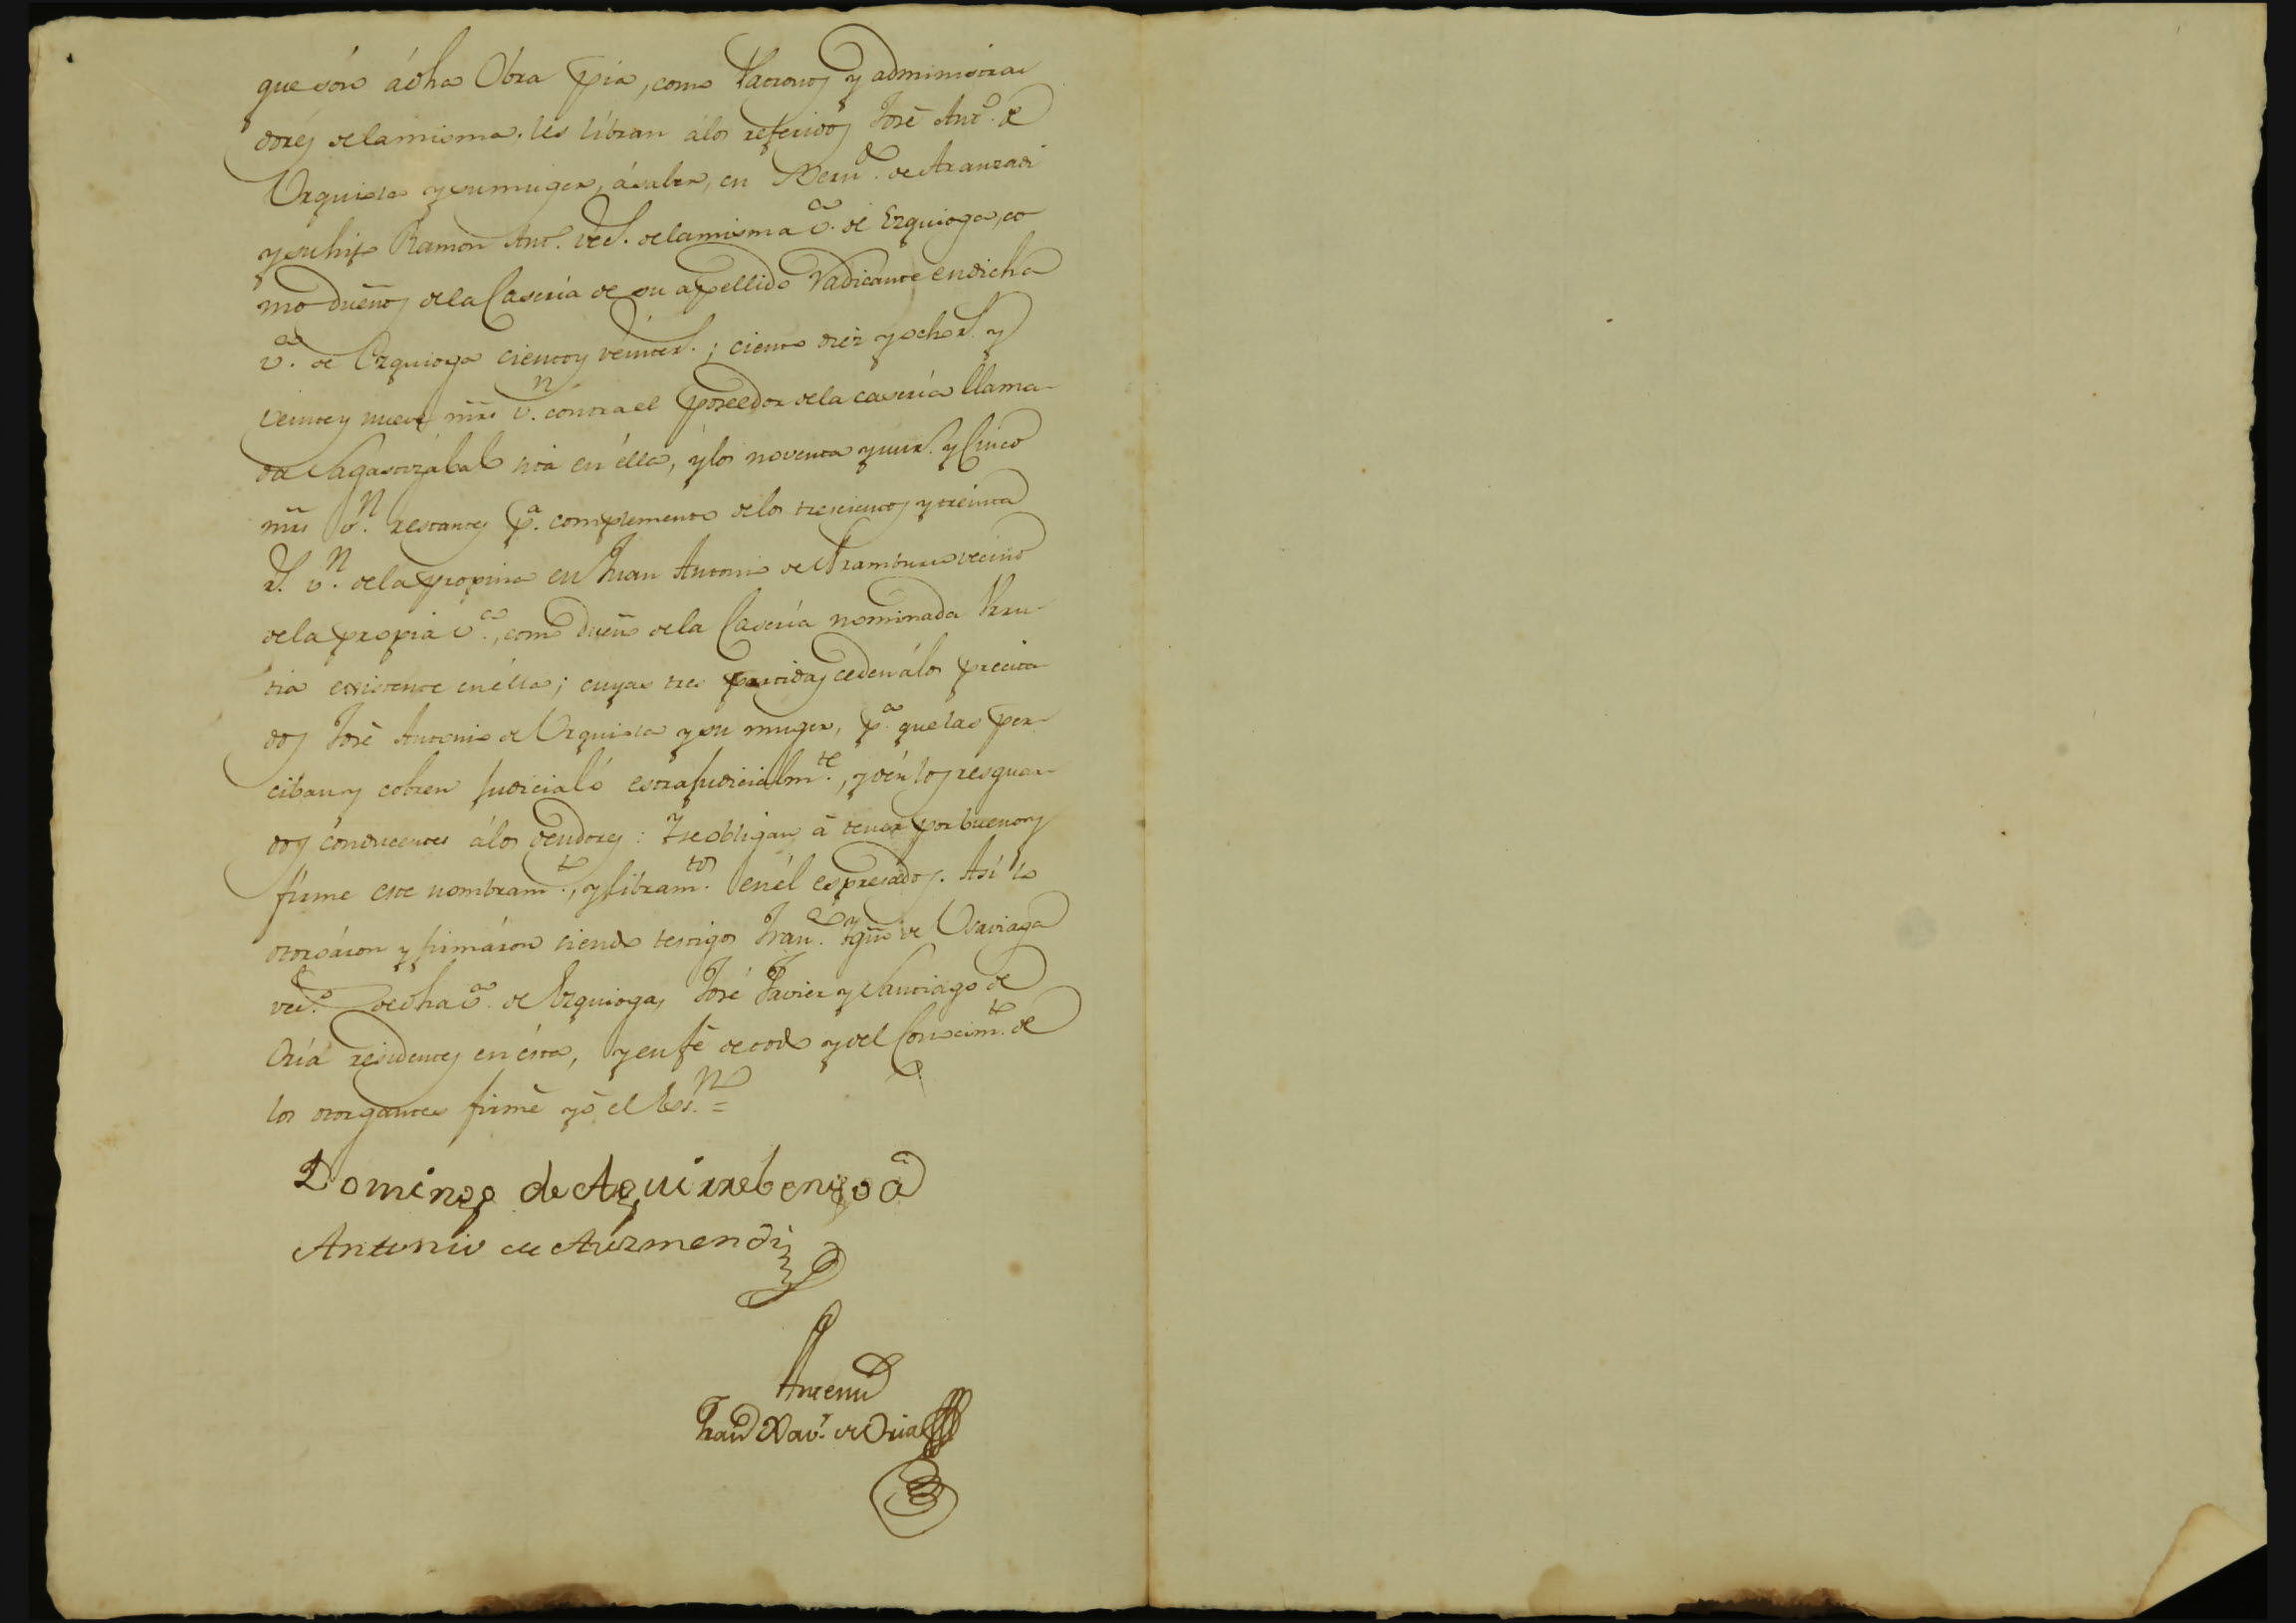 que són á dha Obra pia, como Patronos y administra-
dores de la misma, les libran á los referidos José Antº. de
Urquiola y su muger, á saber, en Berndo. de Aranzadi
y su hijo Ramon Antº. vecs. de la misma vª. de Ezquioga, co-
mo dueños de la Caseria de su apellido radicante en dicha
vª. de Ezquioga ciento y veinte rs.; ciento diez y ocho rs. y
veinte y nueve mrs vn. contra el poseedor de la caseria llama-
da Sagastizabal sita en élla, y los noventa y un rs. y Cinco
mrs vn. restantes pª. complemento de los trescientos y treinta
rs. vn. de la propina en Juan Antonio de Aramburu vecino
de la propia vª., como dueño de la Caseria nominada Urru-
tia existente en élla; cuyas tres partidas ceden á los precita-
dos José Antonio de Urquiola y su muger, pª. que las per-
ciban y cobren judicial ó estrajudicialmte., y dén los resguar-
dos conducentes á los deudores: Y se obligan á tener por bueno y
firme este nombramto., y libramtos. en él espresados. Así lo
otorgáron y firmáron siendo testigos Franco. Ygno. de Usaviaga
veco. de dha vª. de Ezquioga, José Javier y Santiago de
Oria residentes en ésta, y en fé de todo y del Conocimto. de
los otorgantes firmé yó el Esno. =
Domingo de Aguirrebengoa
Antonio de Aizmendi
Ante mi
Franco Xavr. de Oria